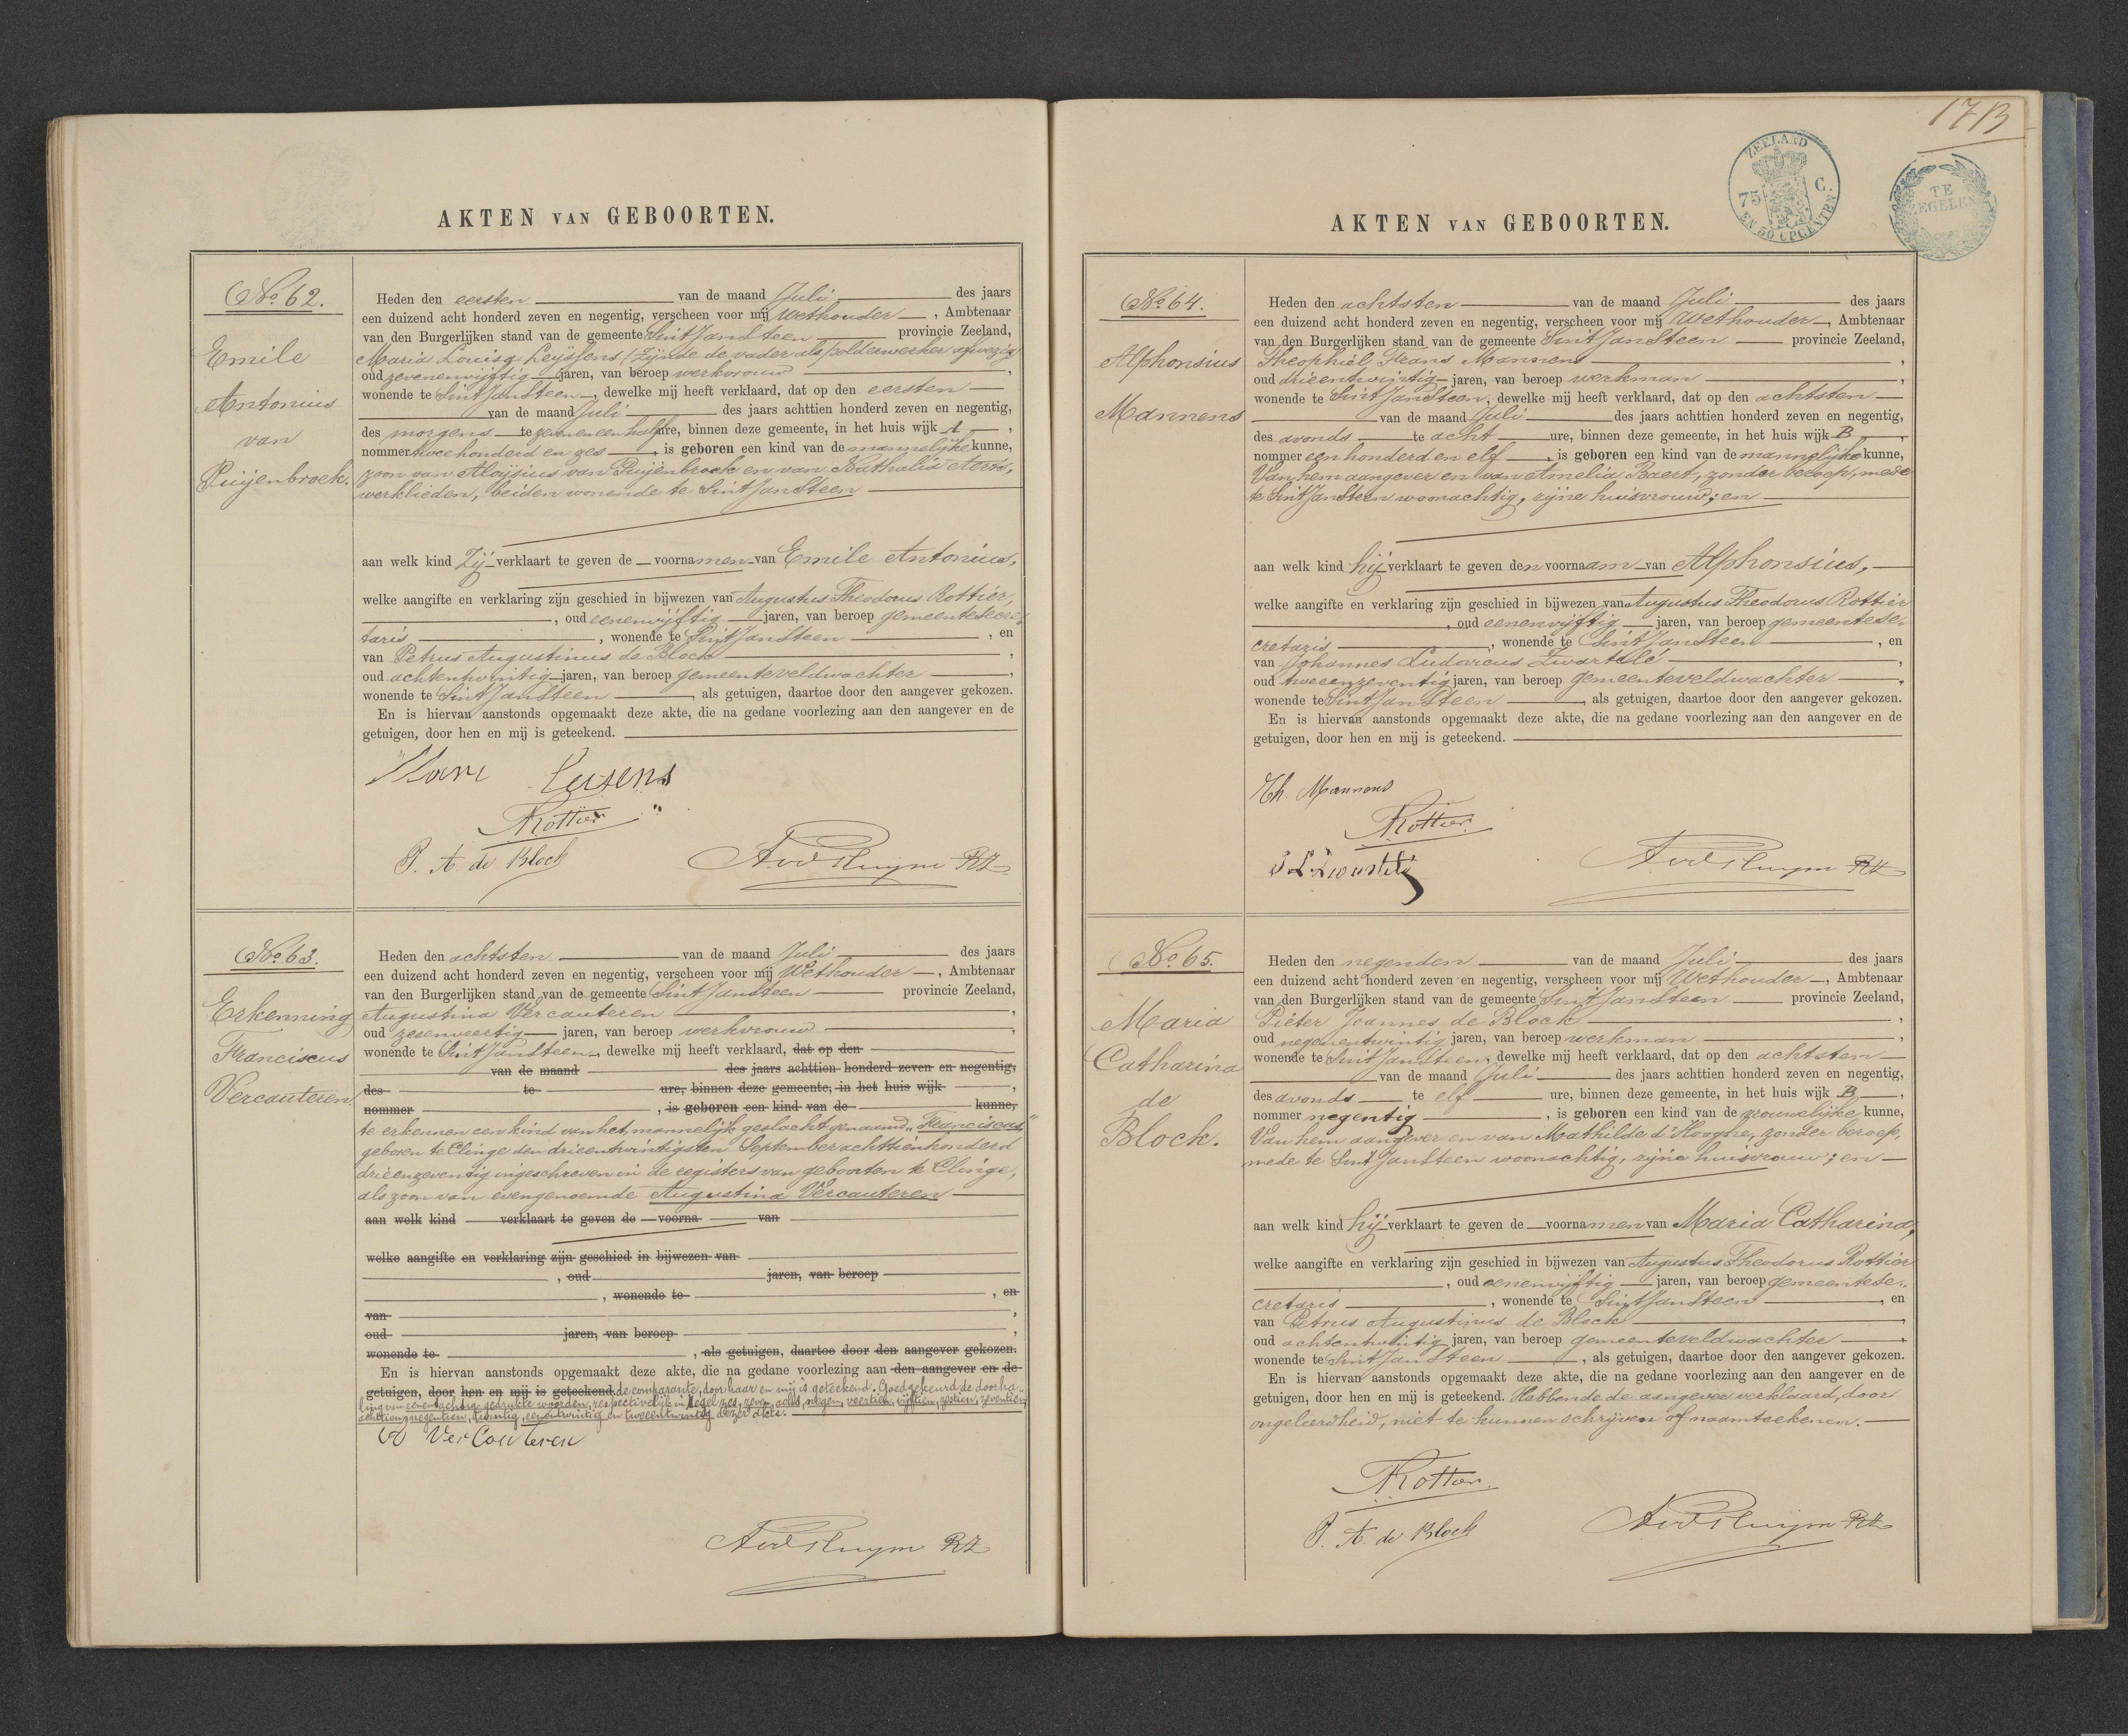 AKTEN VAN GEBOORTEN.
No 62.
Emile
Antonius
van
Puijenbroek.
Heden den eersten van de maand Juli des jaars
een duizend acht honderd zeven en negentig, verscheen voor mij Wethouder, Ambtenaar
van den Burgerlijken stand van de gemeente Sint Jansteen provincie Zeeland,
Maria Louisa Leyssens (zijnde de vader als polderwerker afwezig)
oud zevenenvijftig jaren, van beroep werkvrouw,
wonende te Sint Jansteen, dewelke mij heeft verklaard, dat op den eersten
van de maand Juli des jaars achttien honderd zeven en negentig,
des morgens te zeven en een half ure, binnen deze gemeente, in het huis wijk A,
nommer tweehonderd en zes, is geboren een kind van de mannelijke kunne,
zoon van Aloÿsius van Puijenbroek en van Nathalia Aerts,
werklieden, beiden wonende te Sint Jansteen
aan welk kind Zij verklaart te geven de voornamen van Emile Antonius,
welke aangifte en verklaring zijn geschied in bijwezen van Augustus Theodorus Rottier,
, oud eenenvijftig jaren, van beroep gemeentesecre-
taris, wonende te Sint Jansteen, en
van Petrus Augustinus de Block,
oud achtentwintig jaren, van beroep gemeenteveldwachter,
wonende te Sint Jansteen, als getuigen, daartoe door den aangever gekozen.
En is hiervan aanstonds opgemaakt deze akte, die na gedane voorlezing aan den aangever en de
getuigen, door hen en mij is geteekend.
Leisens
Rottier
P. A. de Block
No 63.
Erkenning
Franciscus
Vercauteren.
Heden den achtsten van de maand Juli des jaars
een duizend acht honderd zeven en negentig, verscheen voor mij Wethouder, Ambtenaar
van den Burgerlijken stand van de gemeente Sint Jansteen provincie Zeeland,
Augustina Vercauteren,
oud zesenveertig jaren, van beroep werkvrouw,
wonende te Sint Jansteen, dewelke mij heeft verklaard, dat op den
van de maand des jaars achttien honderd zeven en negentig,
des te ure, binnen deze gemeente, in het huis wijk,
nommer, is geboren een kind van de kunne,
te erkennen een kind van het mannelijk geslacht genaamd "Franciscus"
geboren te Clinge den drieentwintigsten September achttienhonderd
drieenzeventig ingeschreven in de registers van geboorten te Clinge,
als zoon van evengenoemde Augustina Vercauteren
aan welk kind verklaart te geven de voorna van
welke aangifte en verklaring zijn geschied in bijwezen van
, oud jaren, van beroep
, wonende te, en
van,
oud jaren, van beroep,
wonende te, als getuigen, daartoe door den aangever gekozen.
En is hiervan aanstonds opgemaakt deze akte, die na gedane voorlezing aan den aangever en de
getuigen, door hen en mij is geteekend. de comparante, door haar en mij is geteekend. Goedgekeurd de doorha-
ling van eenentachtig gedrukte woorden, respectivelijk in Regel zes, zeven, acht, negen, veertien, vijftien, zestien, zeventien,
achttien, negentien, twintig, eenentwintig en tweeentwintig dezer akte.
A VerCauteren
AKTEN VAN GEBOORTEN.
17B
ZEELAND
75 C.
EN 50 OPCENTEN
TE
ZEGELEN
No 64.
Alphonsius
Mannens
Heden den achtsten van de maand Juli des jaars
een duizend acht honderd zeven en negentig, verscheen voor mij Wethouder, Ambtenaar
van den Burgerlijken stand van de gemeente Sint Jansteen provincie Zeeland,
Theophiel Frans Mannens,
oud drieentwintig jaren, van beroep werkman,
wonende te Sint Jansteen, dewelke mij heeft verklaard, dat op den achtsten
van de maand Juli des jaars achttien honderd zeven en negentig,
des avonds te acht ure, binnen deze gemeente, in het huis wijk B,
nommer een honderd en elf, is geboren een kind van de mannelijke kunne,
Van hem aangever en van Amelia Baert, zonder beroep, mede
te Sint Jansteen woonachtig, zijne huisvrouw; en
aan welk kind hij verklaart te geven den voornaam van Alphonsius,
welke aangifte en verklaring zijn geschied in bijwezen van Augustus Theodorus Rottier
, oud eenenvijftig jaren, van beroep gemeentese-
cretaris, wonende te Sint Jansteen, en
van Johannes Ludovicus Zwartelé,
oud tweeenzeventig jaren, van beroep gemeenteveldwachter,
wonende te Sint Jansteen, als getuigen, daartoe door den aangever gekozen.
En is hiervan aanstonds opgemaakt deze akte, die na gedane voorlezing aan den aangever en de
getuigen, door hen en mij is geteekend.
Th. Mannens
Rottier
No 65.
Maria
Catharina
de
Block.
Heden den negenden van de maand Juli des jaars
een duizend acht honderd zeven en negentig, verscheen voor mij Wethouder, Ambtenaar
van den Burgerlijken stand van de gemeente Sint Jansteen provincie Zeeland,
Pieter Joannes de Block,
oud negenentwintig jaren, van beroep werkman,
wonende te Sint Jansteen, dewelke mij heeft verklaard, dat op den achtsten
van de maand Juli des jaars achttien honderd zeven en negentig,
des avonds te elf ure, binnen deze gemeente, in het huis wijk B,
nommer negentig, is geboren een kind van de vrouwelijke kunne,
Van hem aangever en van Mathilde d'Hooghe, zonder beroep,
mede te Sint Jansteen woonachtig, zijne huisvrouw; en
aan welk kind hij verklaart te geven de voornamen van Maria Catharina,
welke aangifte en verklaring zijn geschied in bijwezen van Augustus Theodorus Rottier
, oud eenenvijftig jaren, van beroep gemeentese-
cretaris, wonende te Sint Jansteen, en
van Petrus Augustinus de Block,
oud achtentwintig jaren, van beroep gemeenteveldwachter,
wonende te Sint Jansteen, als getuigen, daartoe door den aangever gekozen.
En is hiervan aanstonds opgemaakt deze akte, die na gedane voorlezing aan den aangever en de
getuigen, door hen en mij is geteekend. Hebbende de aangever verklaard, door
ongeleerdheid, niet te kunnen schrijven of naamteekenen.
Rottier
P. A. de Block